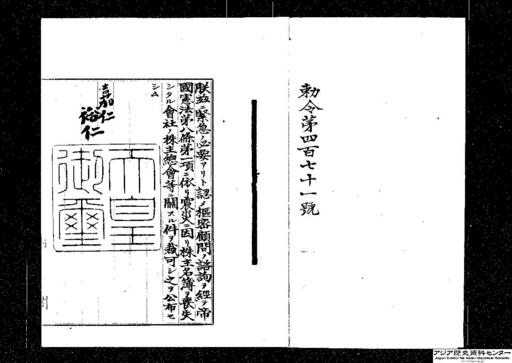 勅令第四百七十一號
朕茲ニ緊急ノ必要アリト認メ樞密顧問ノ諮詢ヲ經テ帝
國憲法第八條第一項ニ依リ震災ニ因リ株主名簿ヲ喪失
シタル會社ノ株主總會等ニ關スル件ヲ裁可シ之ヲ公布セ
シム
嘉仁
裕仁
天皇
御璽
アジア歴史資料センター
Japan Center for Asian Historical Records